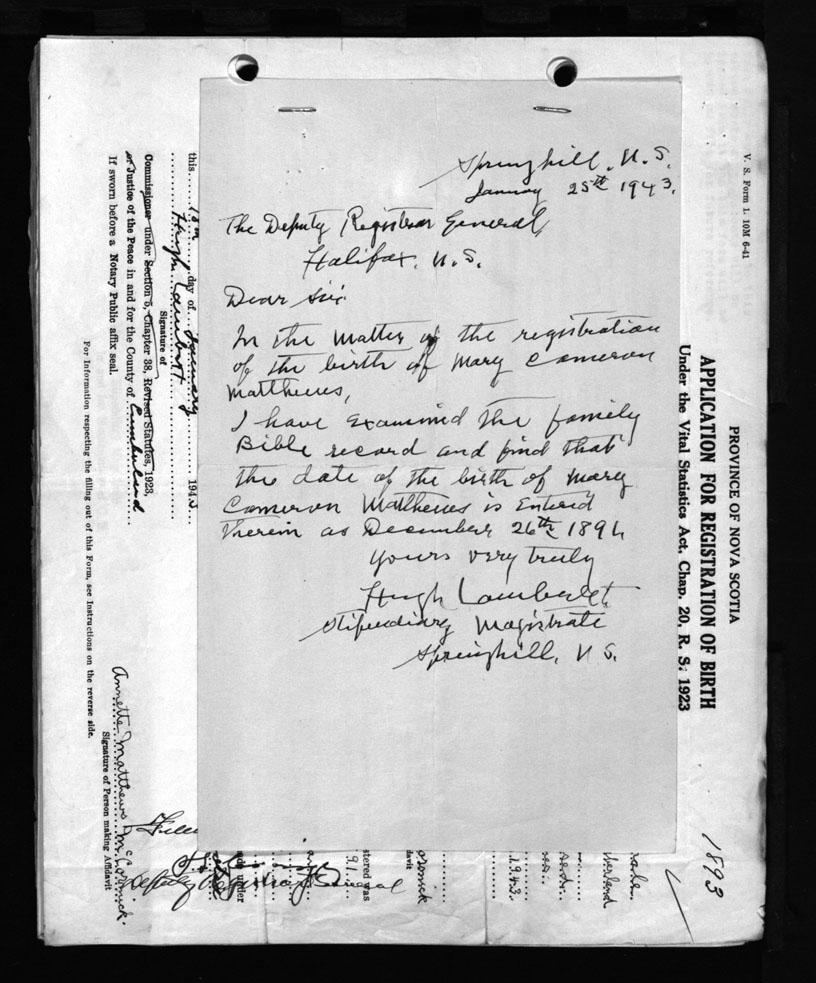 Springhill, N.S.
January 25th 1943.
The Deputy Registrar General,
Halifax, N.S.
Dear Sir:
In the matter of the registration
of the birth of Mary Cameron
Matthews,
I have examined the family
Bible record and find that
the date of the birth of Mary
Cameron Matthews is entered
therein as December 26th 1894
Yours very truly
Hugh Lambert,
Stipendiary Magistrate
Springhill, N.S.
V. S. Form 1. 10M 6-41
PROVINCE OF NOVA SCOTIA
APPLICATION FOR REGISTRATION OF BIRTH
Under the Vital Statistics Act, Chap. 20, R. S. 1923
1893
this day of January 1943
Hugh Lambert
Signature of
Commissioner under Section 5, Chapter 38, Revised Statutes, 1923,
or Justice of the Peace in and for the County of Cumberland
If sworn before a Notary Public affix seal.
For Information respecting the filling out of this Form, see Instructions on the reverse side.
Annette Matthews McCormick.
Signature of Person making Affidavit
Deputy Registrar General
stered was
ormick
davit
1943
berland